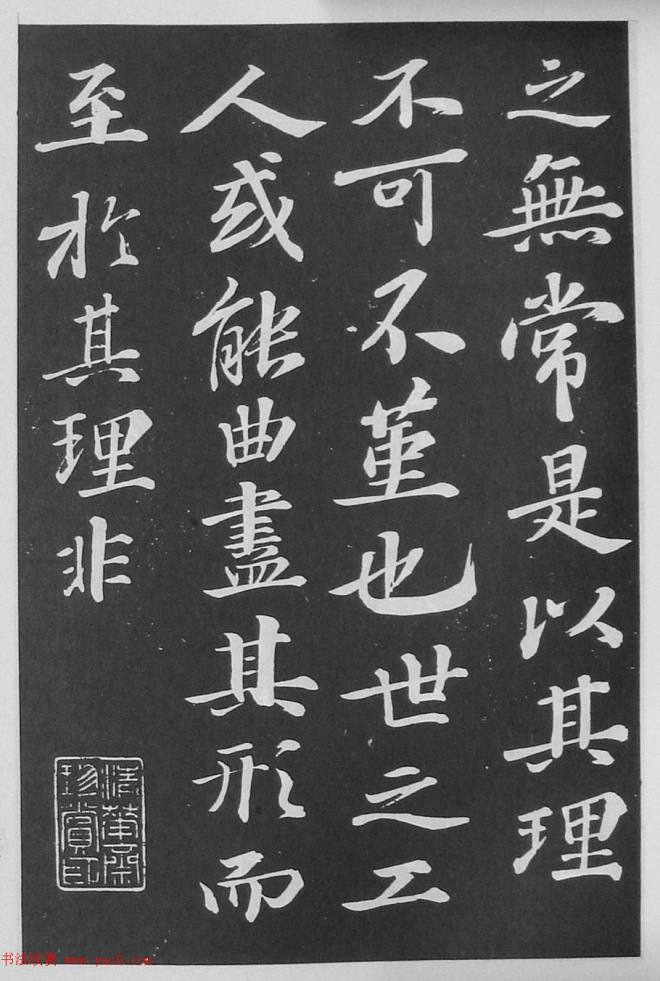 之無常是以其理
不可不堇也世之工
人或能曲盡其形而
至於其理非
珍賞印
书法欣赏